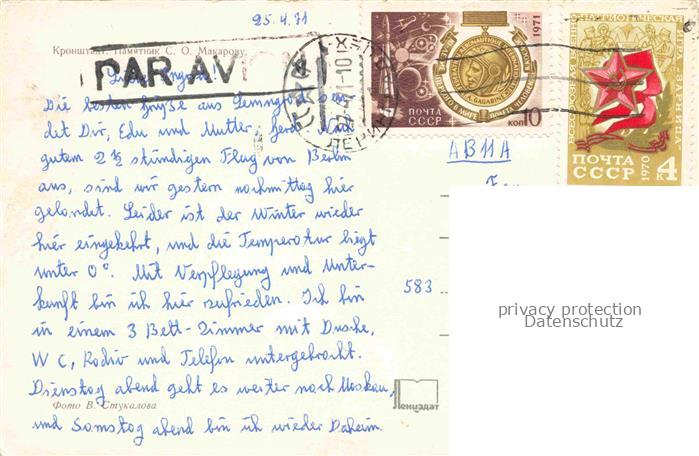 25.4.71
Кронштадт. Памятник С. О. Макарову.
PAR AVION
Liebe !
Die besten Grüße aus Leningrad sen-
det Dir, Edu und Mutter, Gerd. Nach
gutem 2½ stündigen Flug von Berlin
aus, sind wir gestern nachmittag hier
gelandet. Leider ist der Winter wieder
hier eingekehrt, und die Temperatur liegt
unter 0°. Mit Verpflegung und Unter-
kunft bin ich hier zufrieden. Ich bin
in einem 3 Bett-Zimmer mit Dusche,
WC, Radio und Telefon untergebracht.
Dienstag abend geht es weiter nach Moskau,
Фото В. Стукалова
und Samstag abend bin ich wieder Daheim.
1971
ПОЧТА
СССР
10
КОП
ВСЕСОЮЗНАЯ ПИОНЕРСКАЯ ВОЕННО-ПАТРИОТИЧЕСКАЯ ИГРА ЗАРНИЦА
ПОЧТА
СССР
1970
4
К
АВИА
583
privacy protection
Datenschutz
Лениздат